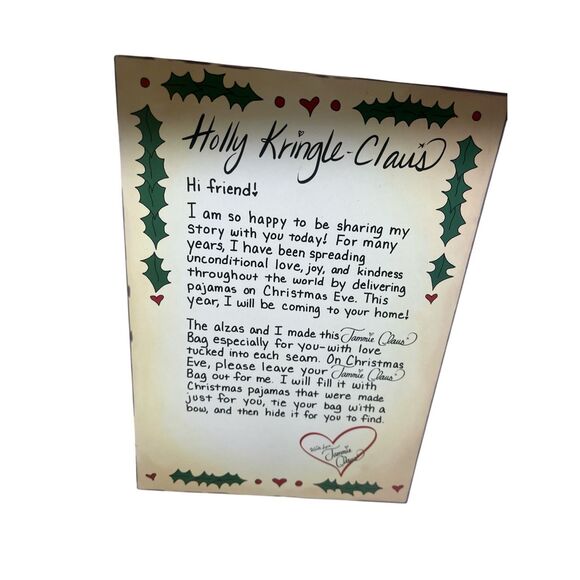 Holly Kringle-Claus
Hi friend!
I am so happy to be sharing my
story with you today! For many
years, I have been spreading
unconditional love, joy, and kindness
throughout the world by delivering
pajamas on Christmas Eve. This
year, I will be coming to your home!
The alzas and I made this Jammie Claus
Bag especially for you-with love
tucked into each seam. On Christmas
Eve, please leave your Jammie Claus
Bag out for me. I will fill it with
Christmas pajamas that were made
just for you, tie your bag with a
bow, and then hide it for you to find.
With love,
Jammie
Claus